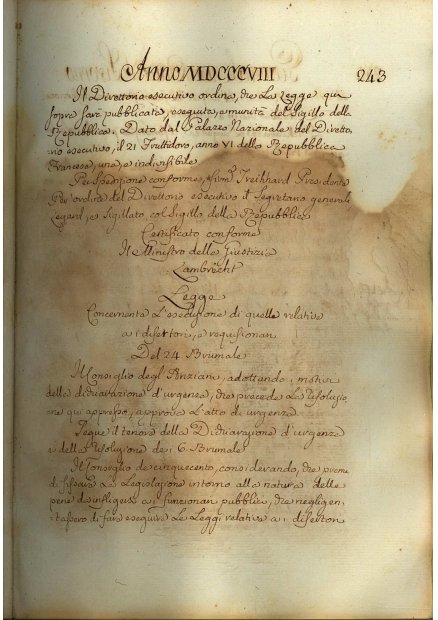 Anno MDCCCVIII 243
Il Direttorio esecutivo ordina, che La Legge qui
sopra sarà pubblicata, eseguita, e munita del Sigillo della
Repubblica. Dato dal Palazzo Nazionale del Diretto-
rio esecutivo, il 21 Fruttidoro, anno VI della Repubblica
Francese, una, e indivisibile
Per Spedizione conforme, Treilhard Presidente
Per ordine del Direttorio esecutivo il Segretario generale
Legard, e Sigillato col Sigillo della Repubblica
Certificato conforme
Il Ministro della Giustizia
Lambrecht
Legge
Concernente L'esecuzione di quelle relative
a i disertori, e requisionari
Del 24 Brumale
Il Consiglio degl'Anziani, adottando i motivi
della dichiarazione d'urgenza, che precede La risoluzio-
ne qui appresso, approva L'atto di urgenza
Segue il tenore della Dichiarazione d'urgenza
e della Risoluzione de i 6 Brumale
Il Consiglio de cinquecento, considerando, che preme
di fissare La Legislazione intorno alla natura delle
pene da infliggersi a i funzionari pubblici, che negligen-
tassero di fare eseguire Le Leggi relative a i disertori